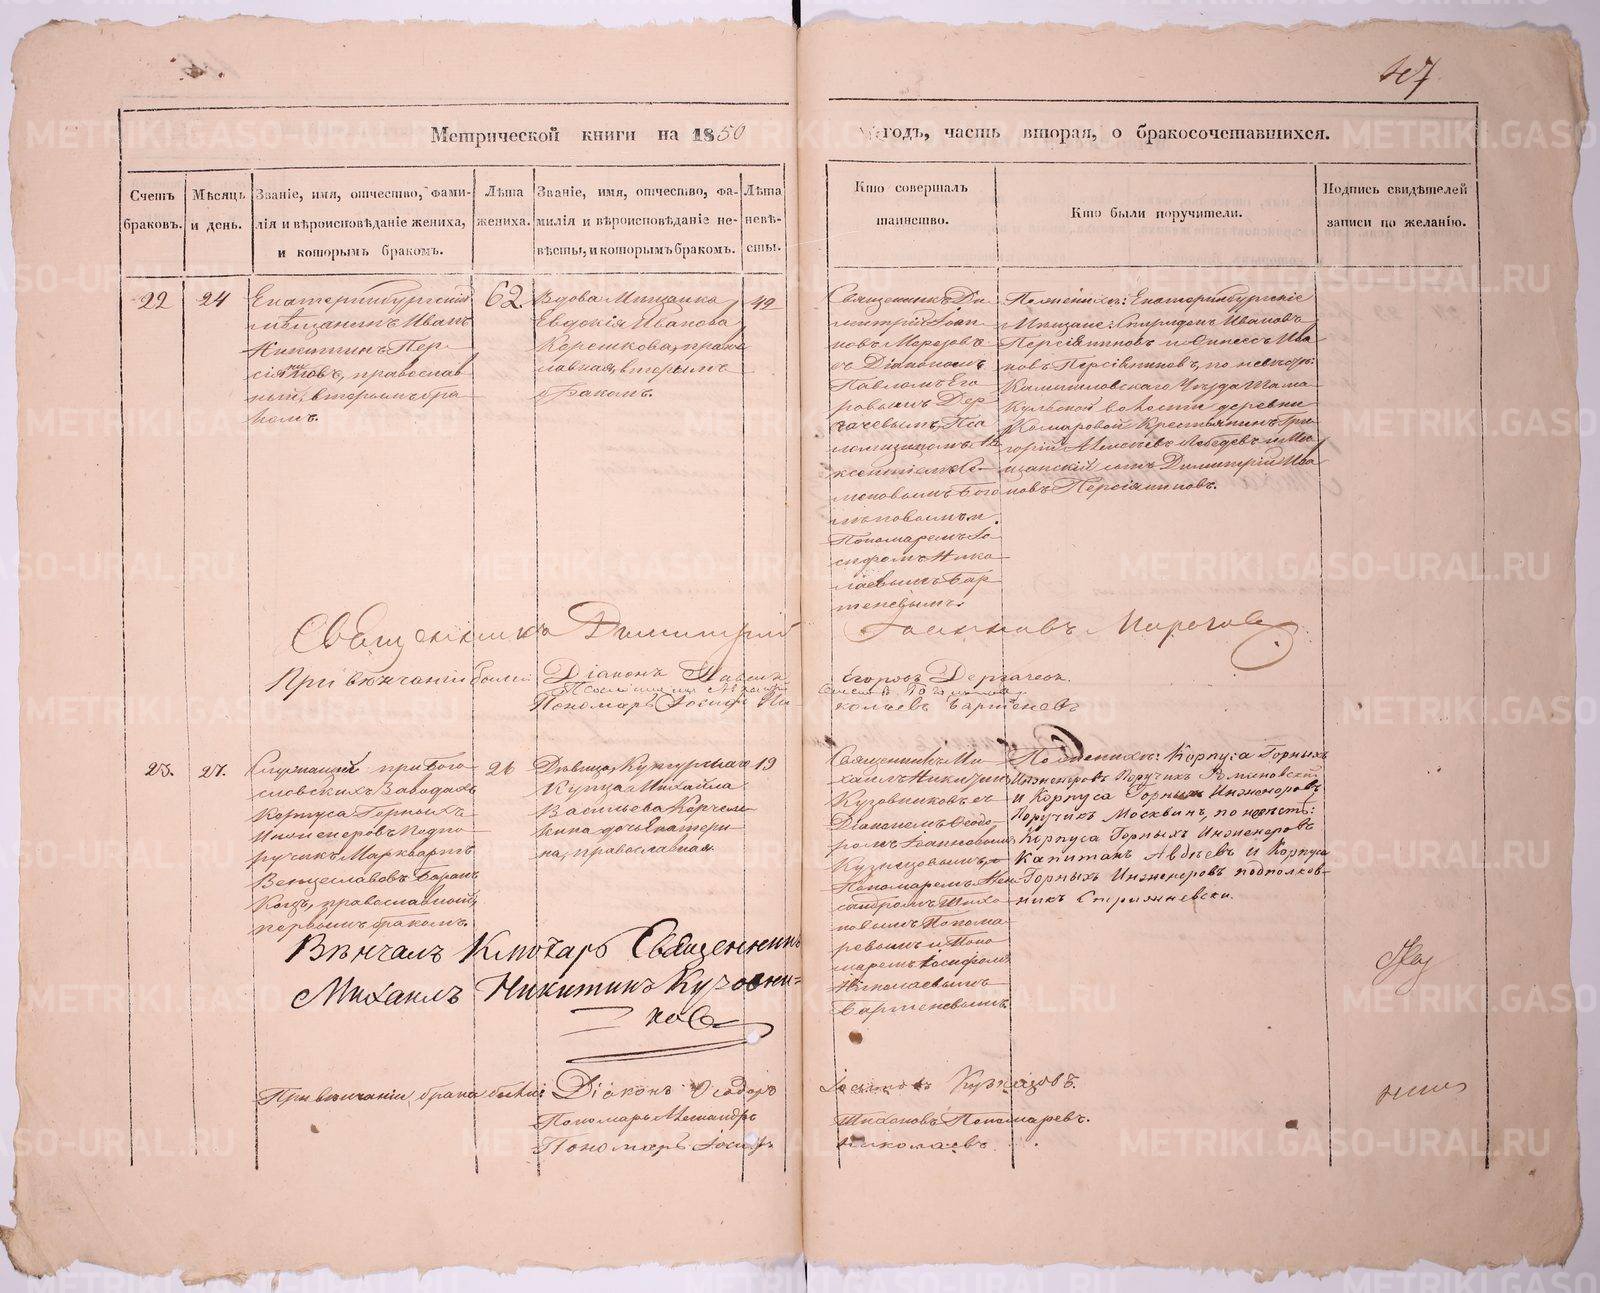 147
Метрической книги на 1850
годъ, часть вторая, о бракосочетавшихся.
Счетъ браковъ.
Мѣсяцъ и день.
Званіе, имя, отчество, фами-
лія и вѣроисповѣданіе жениха,
и которымъ бракомъ.
Лѣта
жениха.
Званіе, имя, отчество, фа-
милія и вѣроисповѣданіе не-
вѣсты, и которымъ бракомъ.
Лѣта
невѣ-
сты.
Кто совершалъ
таинство.
Кто были поручители.
Подпись свидѣтелей
записи по желанію.
22
24
Екатеринбургскій
мѣщанинъ Иванъ
Никитинъ Пер-
сіяниновъ, православ
ный, вторымъ бра
комъ.
62.
Вдова Мѣщанка
Евдокія Иванова
Корешкова, право
славная, вторымъ
бракомъ.
42
Священникъ Ди
митрій Іоан
новъ Морозовъ
съ Діакономъ
Павломъ Его
ровымъ Дер
гачевымъ, Пса
ломщикомъ
Пономаремъ Іо
сифомъ Нико
лаевымъ Бар
теневымъ.
По женихѣ: Екатеринбургскіе
Мѣщане: Спиридонъ Ивановъ
Персіяниновъ и Ива
новъ Персіяниновъ, по невѣстѣ:
Камышловскаго Уѣзда Тама
кульской волости деревни
Комаровой Крестьянинъ Гри
горій Алексѣевъ Лебедевъ и Мѣ
щанскій сынъ Димитрій Ива
новъ Персіяниновъ.
Священникъ Димитрій Іоанновъ Морозовъ
При вѣнчаніи были Діаконъ Павелъ Егоровъ Дергачевъ.
Пономарь Іосифъ Ни колаевъ Бартеневъ
23.
27.
Служащій при Бого
словскихъ Заводахъ
Корпуса Горныхъ
Инженеровъ Подпо
ручикъ Марквартъ
Венцеславовъ
православный,
первымъ бракомъ.
26
Дѣвица, Кунгурскаго
Купца Михайла
Васильева
кина дочь Екатери
на, православная.
19
Священникъ Ми
хаилъ Никитинъ
Кузовниковъ съ
Діакономъ Ѳеодо
ромъ Іоанновымъ
Кузнецовымъ,
Пономаремъ Алек
сандромъ Тихо
новымъ Понома
ревымъ и Поно
маремъ Іосифомъ
Николаевымъ
Бартеневымъ
По женихѣ: Корпуса Горныхъ
Инженеровъ Поручикъ Романовскій
и Корпуса Горныхъ Инженеровъ
Поручикъ Москвинъ, по невѣстѣ:
Корпуса Горныхъ Инженеровъ
Капитанъ Авдѣевъ и Корпуса
Горныхъ Инженеровъ подполков-
никъ Стрижневски.
Вѣнчалъ Ключарь Священникъ
Михаилъ Никитинъ Кузовни-
ковъ
При вѣнчаніи брака были: Діаконъ Ѳеодоръ Іоанновъ Кузнецовъ.
Пономарь Александръ Тихоновъ Пономаревъ.
Пономарь Іосифъ Николаевъ
METRIKI.GASO-URAL.RU